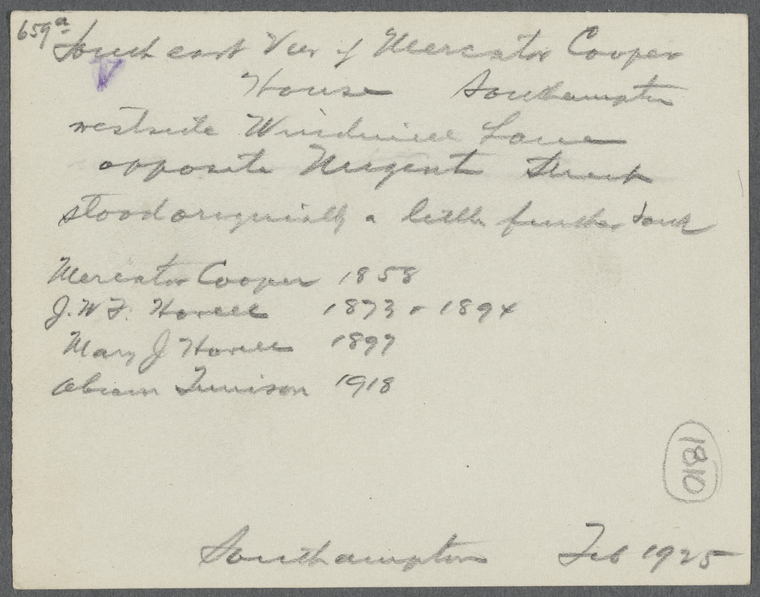 659a
South east View of Mercator Cooper
House Southampton
westside Windmill Lane
opposite Nugent Street
stood originally a little further South
Mercator Cooper 1858
J.W.F. Howell 1873 & 1894
Mary J Howell 1897
Abram Tunison 1918
1810
Southampton Feb 1925